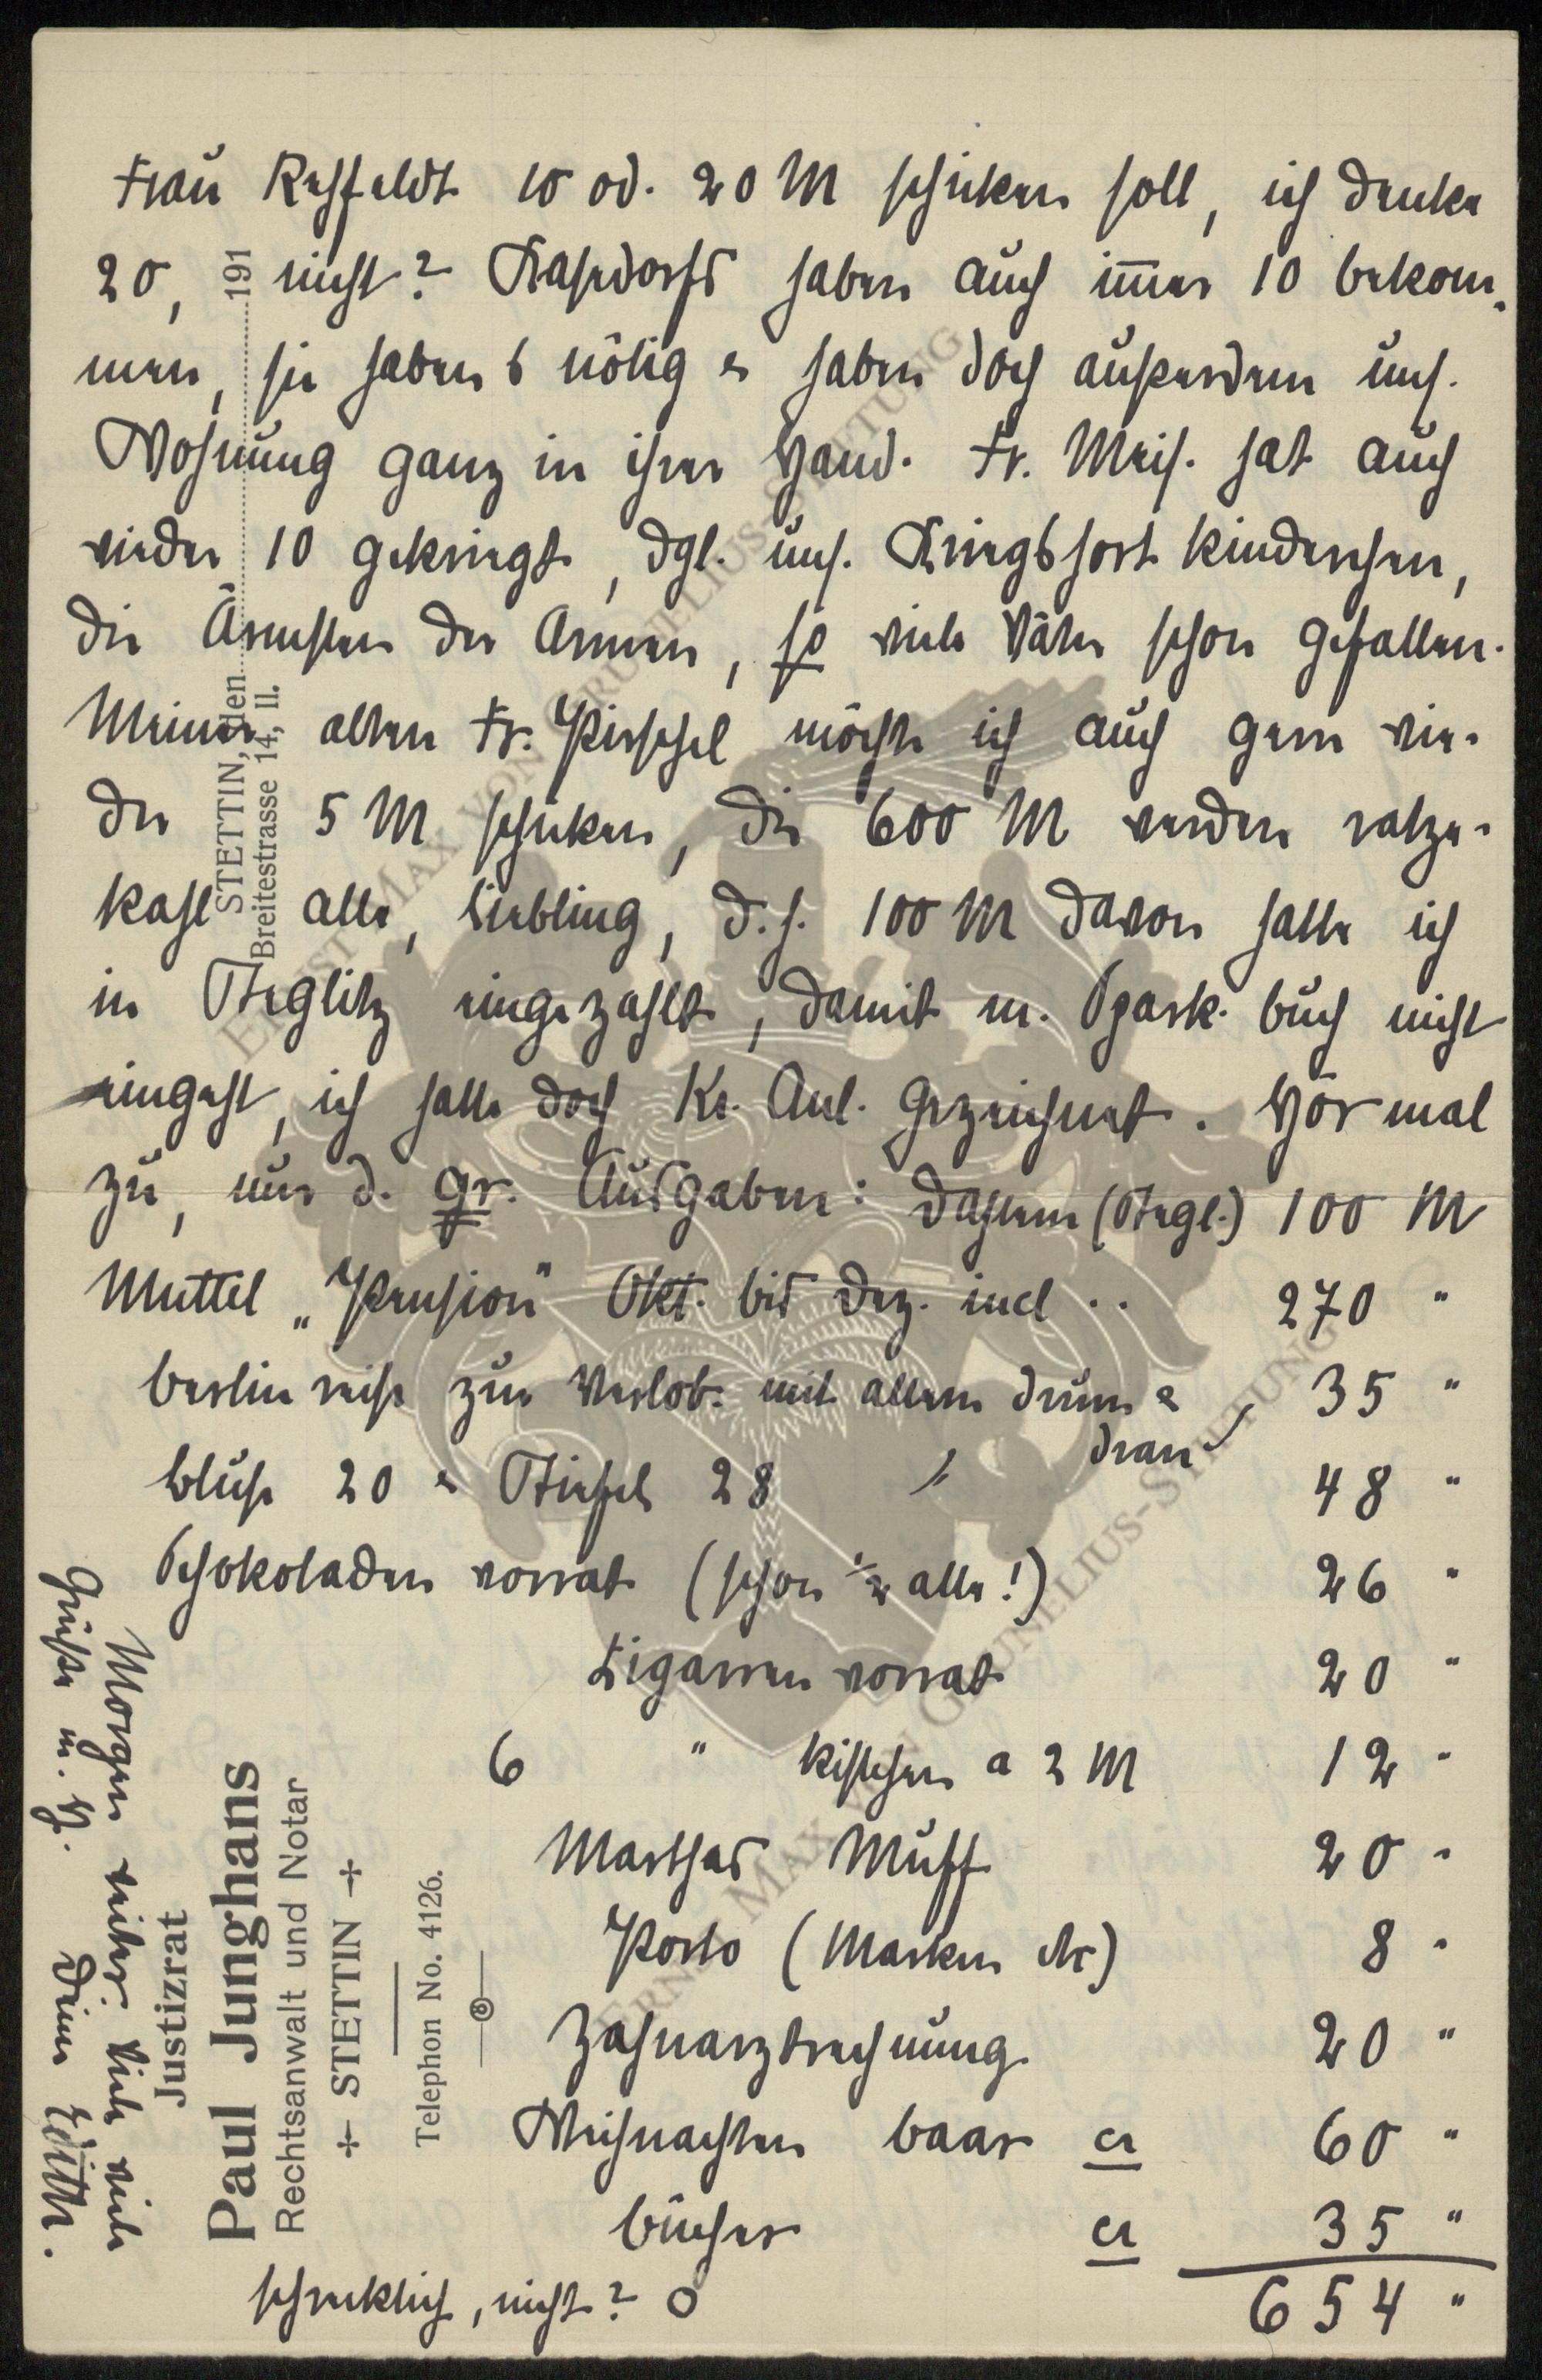 Frau Rehfeldt 10 od. 20 M schicken soll, ich denke
20, nicht? Kasedorfs haben auch immer 10 bekom-
men, sie habens nötig & haben doch außerdem uns.
Wohnung ganz in ihrer Hand. Fr. Meih. hat auch
wieder 10 gekriegt, dgl. uns. Kriegshort kinderchen,
die Ärmsten der Armen, so viele Väter schon gefallen.
Meiner alten Fr. Pirschel möchte ich auch gern wie-
der 5 M schicken, die 600 M werden ratze-
kahl alle, Liebling, d. h. 100 M davon hatte ich
in Steglitz eingezahlt, damit m. Spark. buch nicht
eingeht, ich hatte doch Kr. Anl. gezeichnet. Hör mal
zu, nur d. gr. Ausgaben: Daheim (Stegl.) 100 M
Muttel „Pension" Okt. bis Dez. incl .. 270 "
Berlin reise zur Verlob. mit allem drum & dran 35 "
Bluse 20 & Stiefel 28 48 "
Schokoladen vorrat (schon ½ alle!) 26 "
Zigarren vorrat 20 "
6 " kistchen a 2 M 12 "
Marthas Muff 20 "
Porto (Marken etc) 8 "
Zahnarztrechnung 20 "
Weihnachten baar ca 60 "
Bücher ca 35 "
654 "
schrecklich, nicht? O
Morgen weiter. Viele viele
Grüße u. K.
Deine Edith.
STETTIN, den 191
Breitestrasse 14, II.
Justizrat
Paul Junghans
Rechtsanwalt und Notar
STETTIN
Telephon No. 4126.
ERNST MAX VON GRUNELIUS-STIFTUNG
ERNST MAX VON GRUNELIUS-STIFTUNG